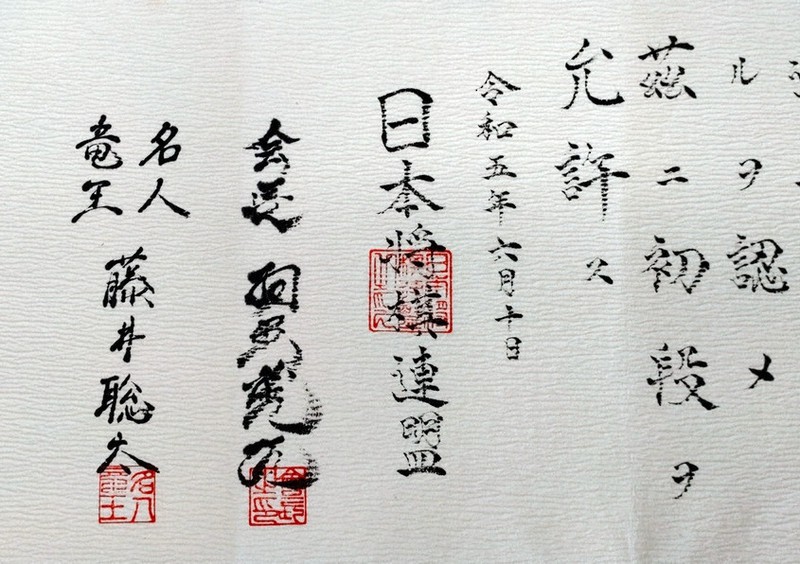 ルヲ認メ
茲ニ初段ヲ
允許ス
令和五年六月十日
日本将棋連盟
会長 羽生善治
名人
竜王 藤井聡太
名人
竜王